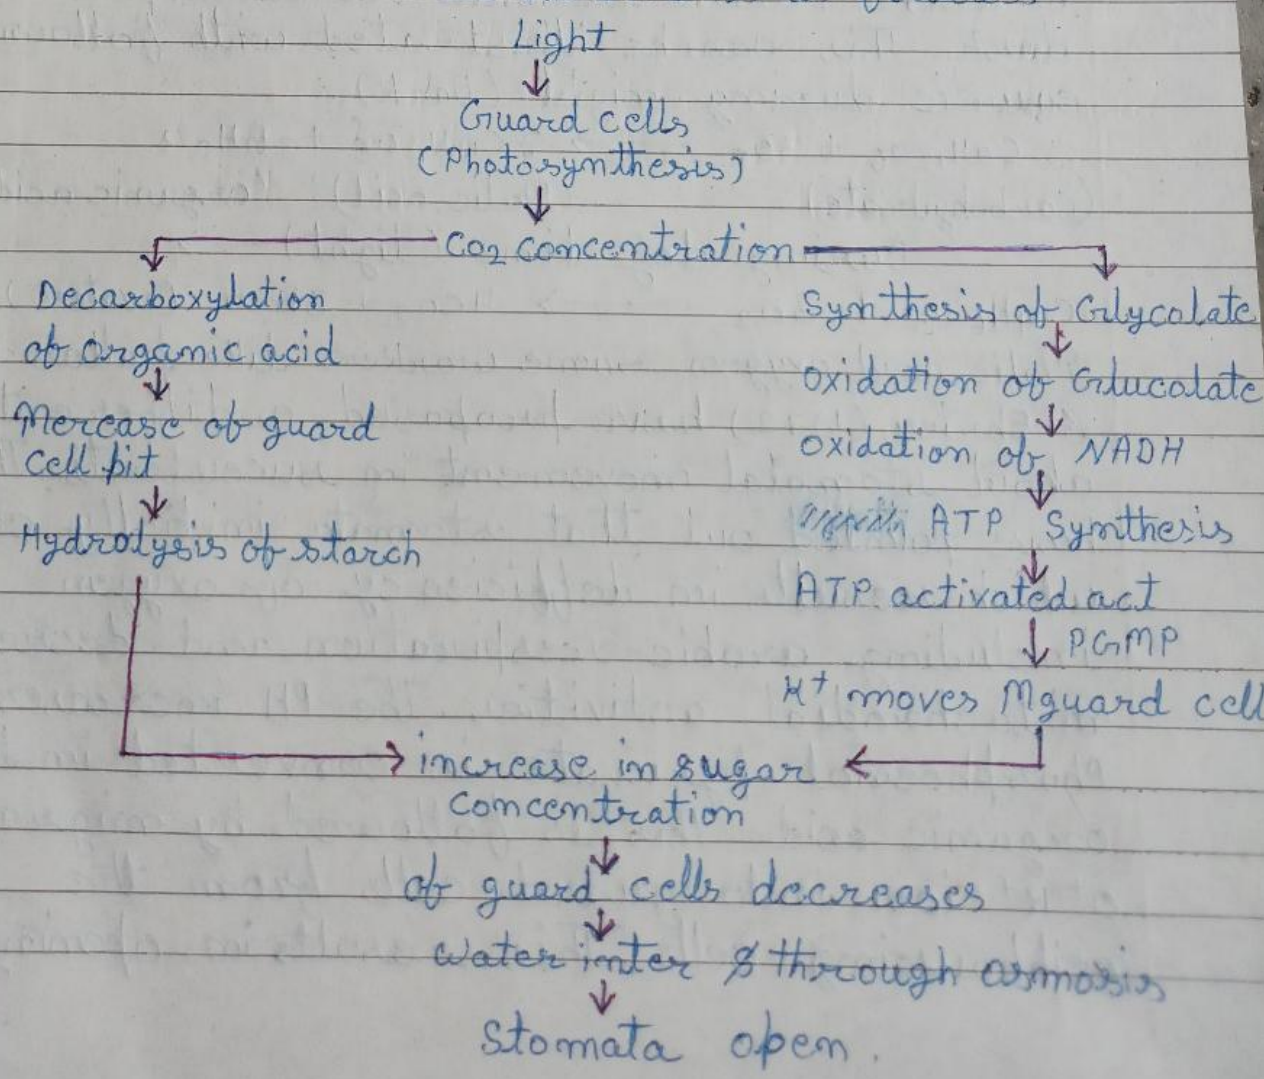 Light
Guard cells
(Photosynthesis)
CO2 concentration
Decarboxylation
of organic acid
Mercase of guard
cell pit
Hydrolysis of starch
Synthesis of Glycolate
Oxidation of Glucolate
Oxidation of NADH
ATP Synthesis
ATP activated act
PGMP
K+ moves Mguard cell
increase in sugar
concentration
of guard cells decreases
water inter through osmosis
Stomata open.